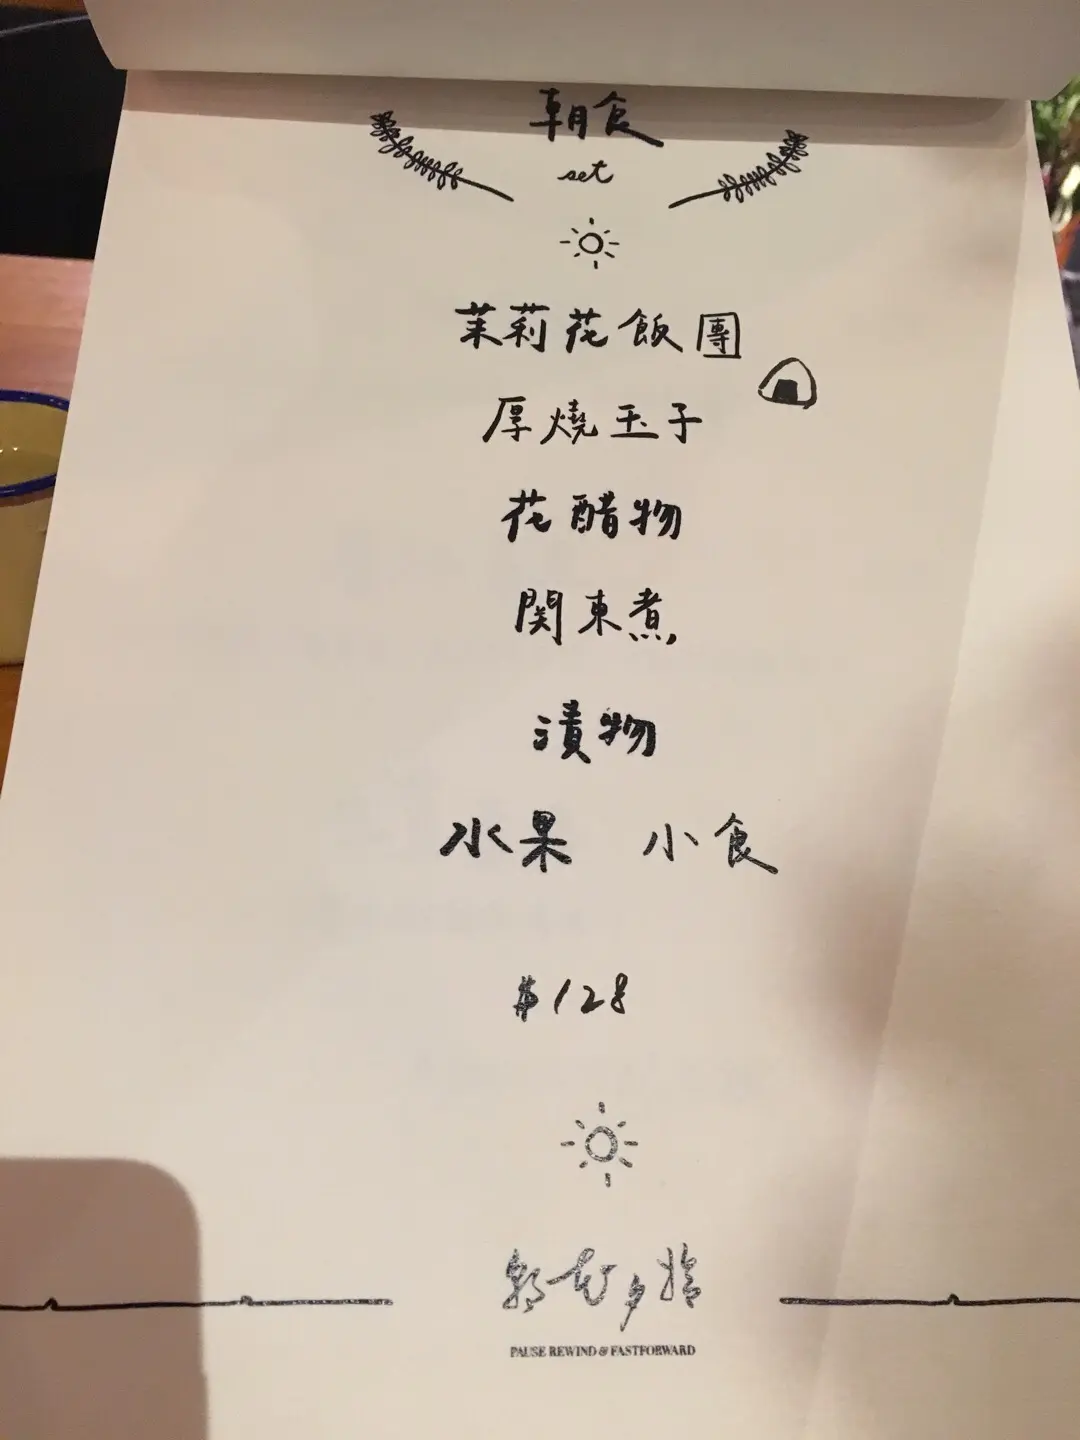 朝食
set
茉莉花飯團
厚燒玉子
花醋物
関東煮
漬物
水果 小食
$128
朝花夕拾
PAUSE REWIND & FASTFORWARD